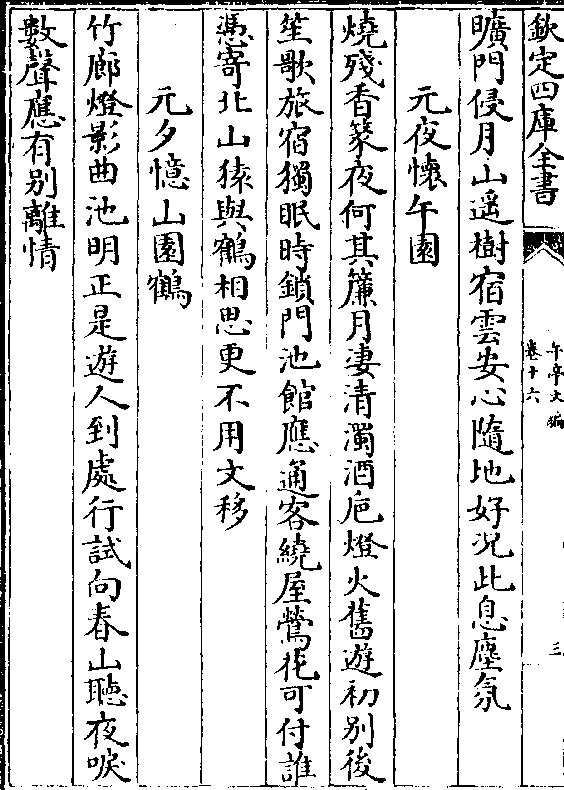 欽定四庫全書
午亭文編
卷十六
三
曠門侵月山遥樹宿雲安心隨地好况此息塵氛
元夜懷午園
燒殘香篆夜何其簾月凄清濁酒巵燈火舊遊初别後
笙歌旅宿獨眠時鎖門池館應通客繞屋鶯花可付誰
憑寄北山猿與鶴相思更不用文移
元夕憶山園鶴
竹廊燈影曲池明正是遊人到處行試向春山聽夜唳
數聲應有别離情